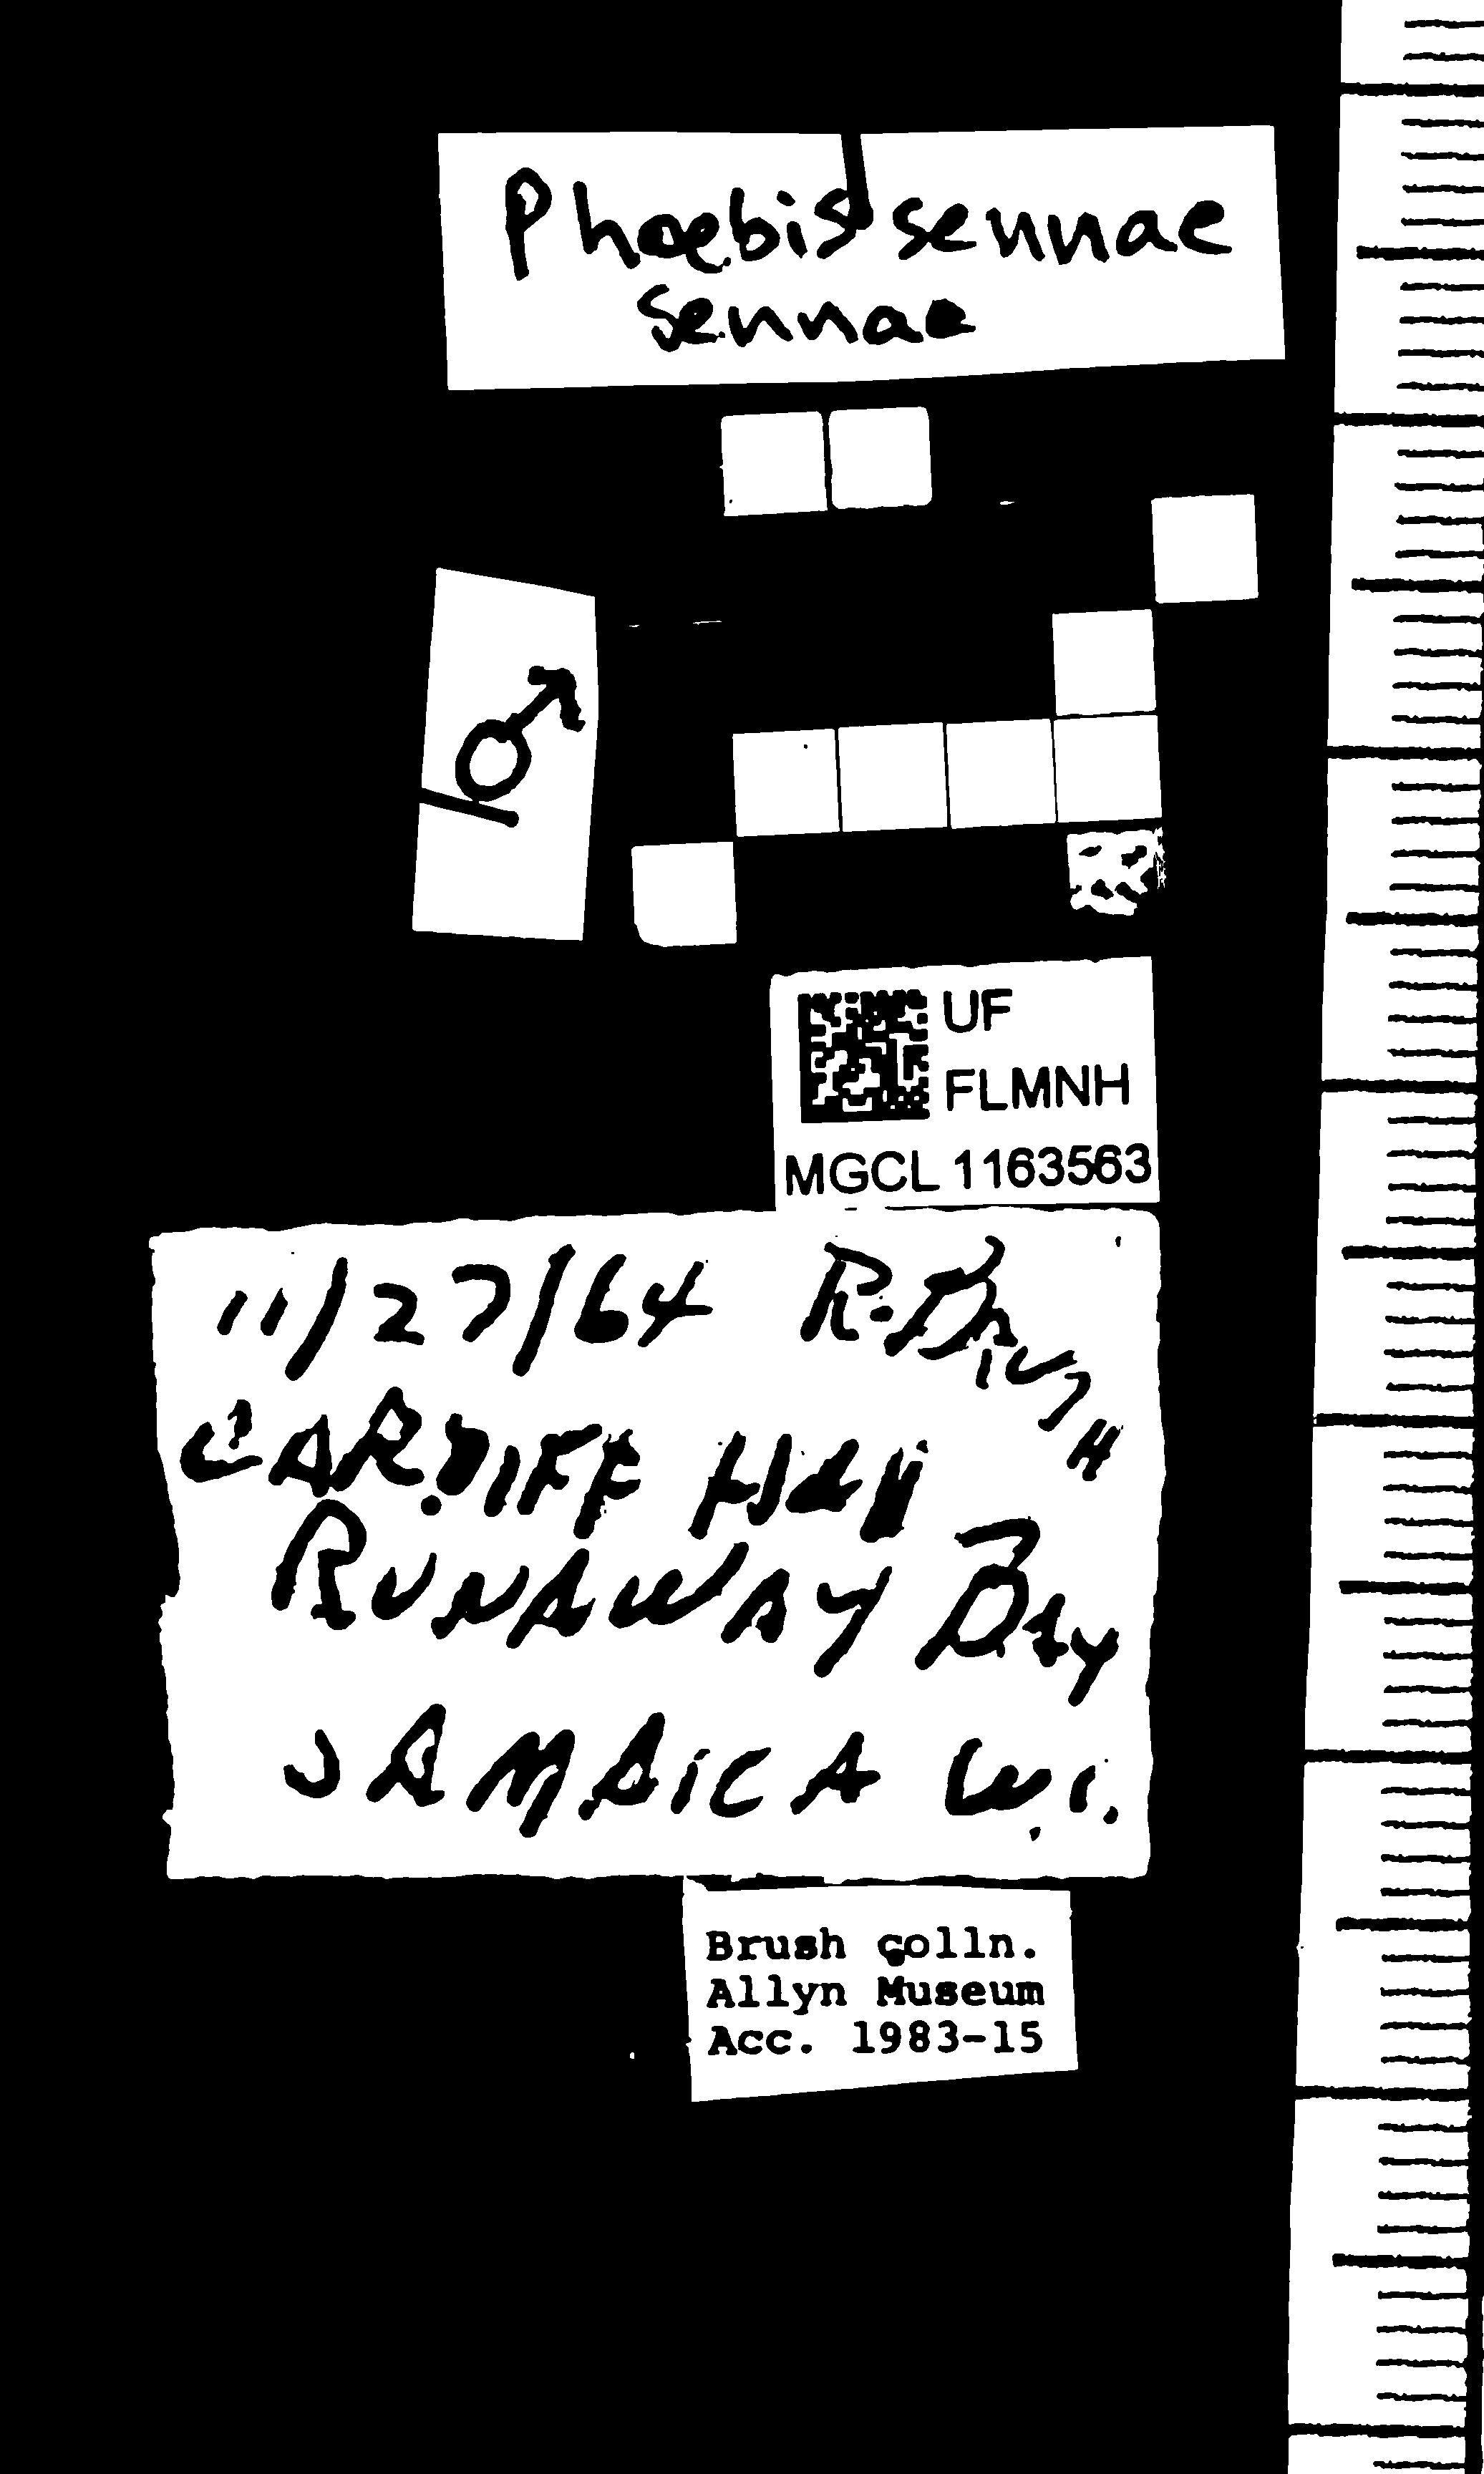 Phoebis sennae
sennae
♂
UF
FLMNH
MGCL 1163563
11/27/64 R.
CARDIFF HALL
RUNAWAY BAY
JAMAICA W.I.
Brush colln.
Allyn Museum
Acc. 1983-15